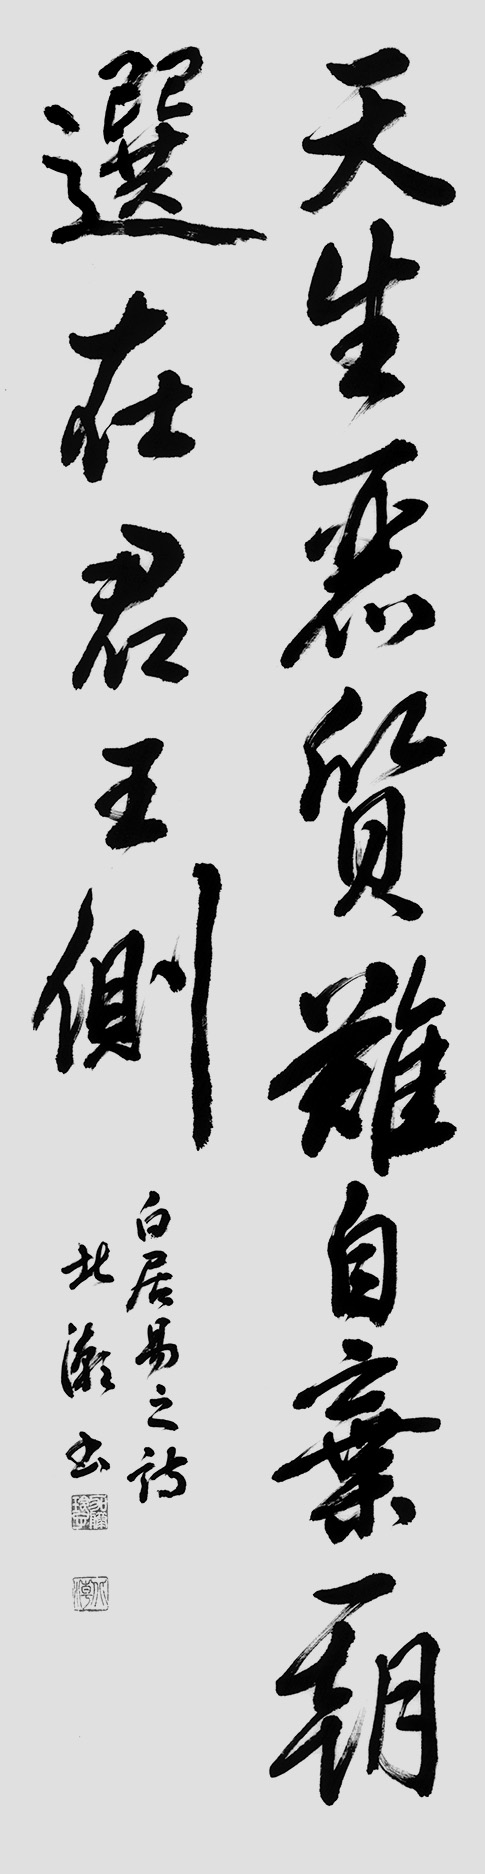 天生麗質難自棄一朝
選在君王側
白居易之詩
北書